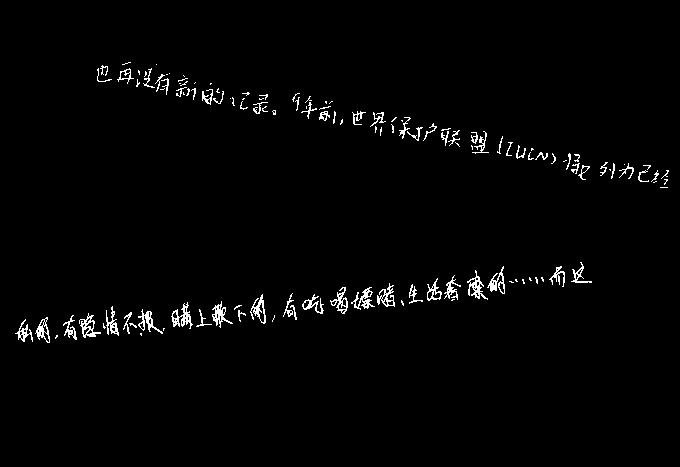 也再没有新的记录。9年前,世界保护联盟(IUCN)将它列为已经
私的,有隐情不报、瞒上欺下的,有吃喝嫖赌、生活奢糜的……而这